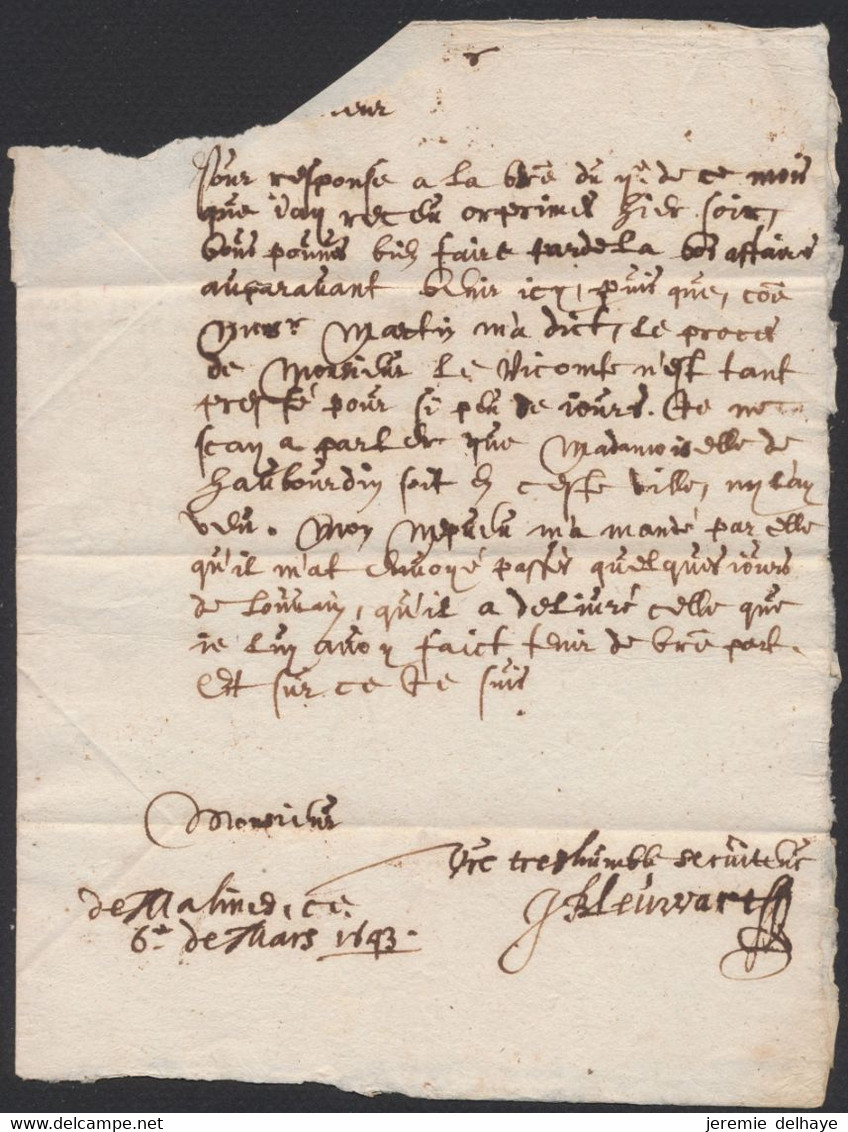 ieur
Pour response a la vre du ye de ce mois
que i'ay receu orprimes hier soir,
vous pouués bien faire pardela vos affaires
auparauant venir icy, puis que, coe
Monsr Martin m'a dict, le proces
de Monsieur le Vicomte n'est tant
pressé pour si peu de iours. Je ne
scay a parler que Madamoiselle de
haubourdin soit en ceste ville, ny l'ay
veu. Mon Nepueu m'a mandé par celle
qu'il m'at enuoyé passés quelques iours
de Louuain, qu'il a deliuré celle que
ie luy auoy faict tenir de vre part.
Et sur ce Je suis
Monsieur
Vre treshumble seruiteur
de Malines, ce
6e de Mars 1643.
delcampe.net
jeremie delhaye